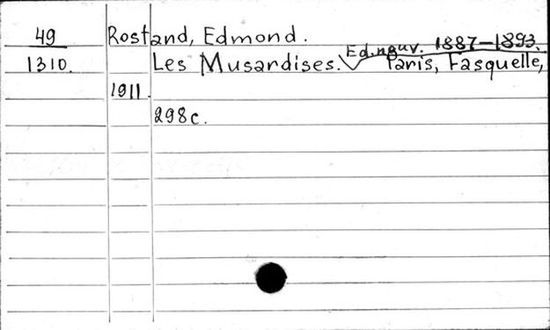 49
1310.
Rostand, Edmond.
Les Musardises. Ed. nouv. 1887–1893. Paris, Fasquelle,
1911.
298c.